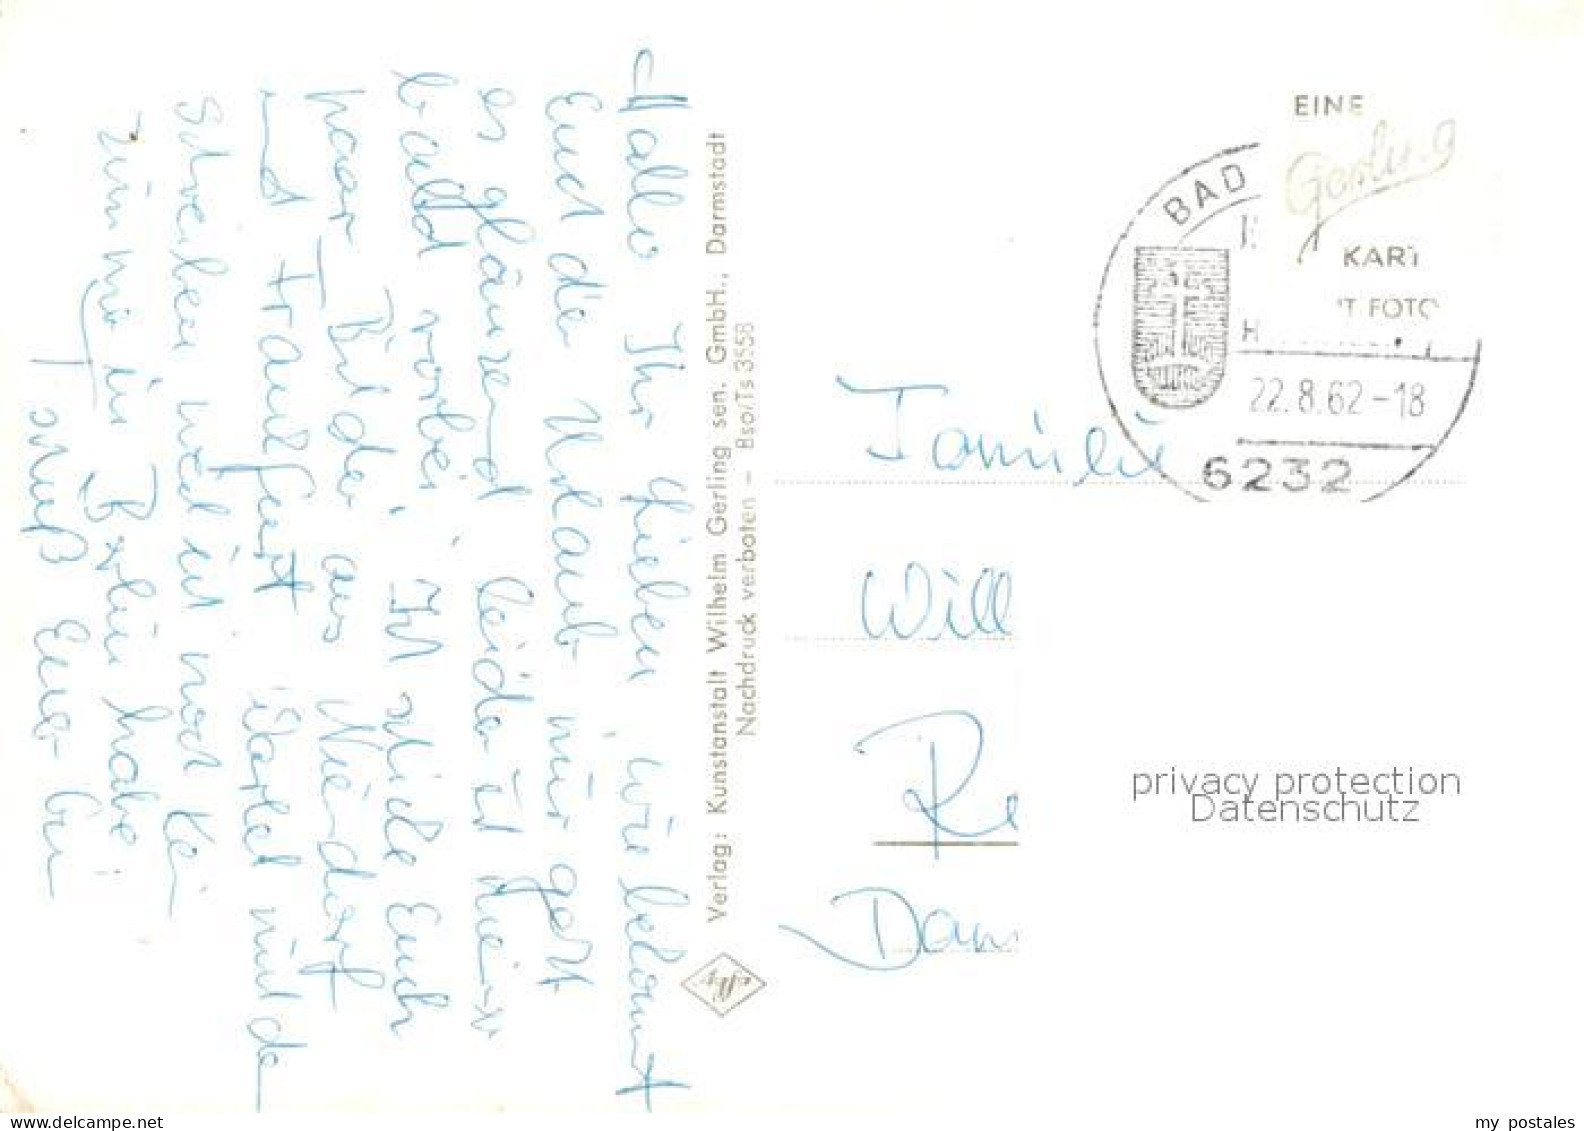 Hallo Ihr Lieben, wie bekommt
Euch der Urlaub mir geht
es glänzend, leider ist hier
bald vorbei. Ich schicke Euch
paar Bilder aus Niendorf
und Frankfurt
schreiben weil ich noch kein
Zimmer in Berlin habe.
Gruß Euer
Verlag: Kunstanstalt Wilhelm Gerling sen. GmbH., Darmstadt
Nachdruck verboten – Bso/Ts 3558
EINE
Gerling
KART
T FOTO
BAD
22.8.62-18
6232
Familie
Will
Re
Dam
privacy protection
Datenschutz
www.delcampe.net
my postales